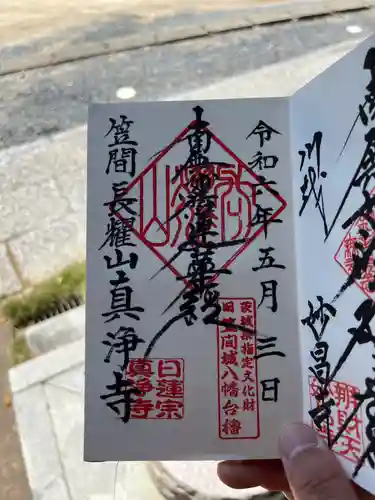 令和六年五月三日
南無妙法蓮華経
笠間 長耀山 真浄寺
長耀山
茨城県指定文化財
旧笠間城八幡台櫓
日蓮宗
真浄寺
川越
妙昌寺